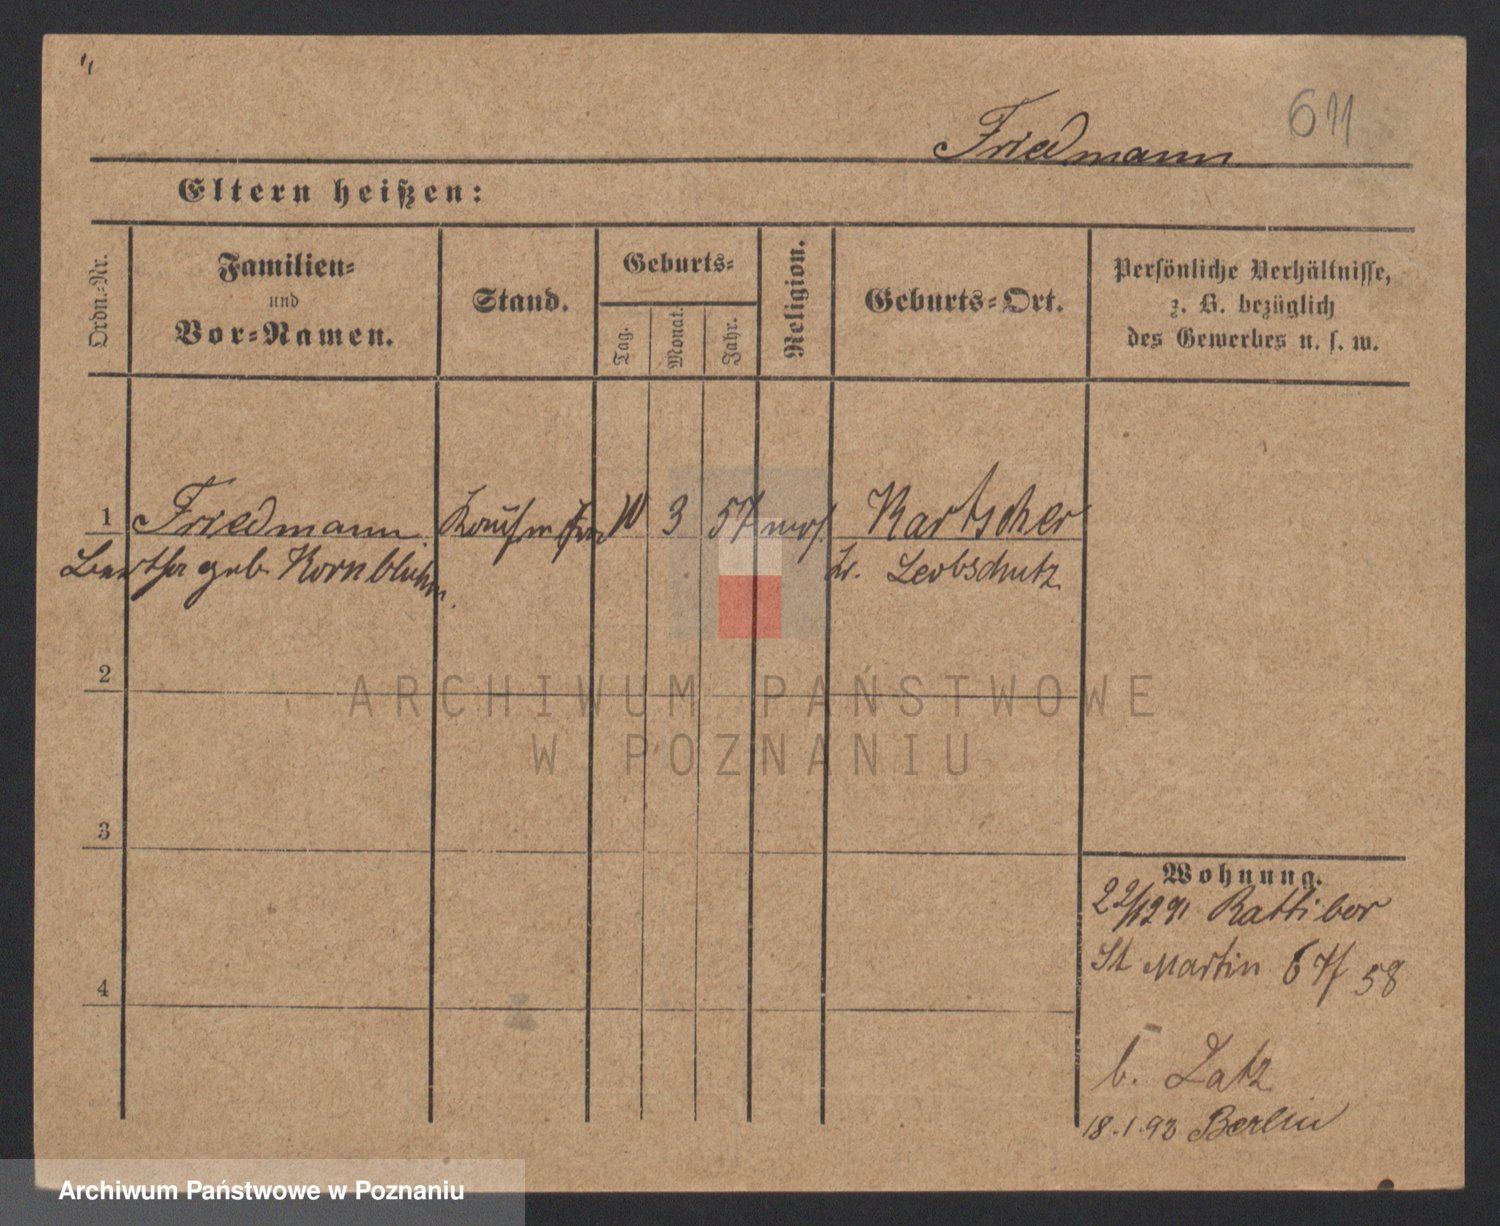 611
Friedmann
Eltern heißen:
Ordn.-Nr.
Familien-
und
Vor-Namen.
Stand.
Geburts-
Tag.
Monat.
Jahr.
Religion.
Geburts-Ort.
Persönliche Verhältnisse,
z. B. bezüglich
des Gewerbes u. s. w.
1 Friedmann Kaufm 3 57 mos. Katscher
Bertha geb Kornbluhm. Leobschutz
2
ARCHIWUM PAŃSTWOWE
W POZNANIU
3
Wohnung.
22/12 91 Rattibor
St Martin 67/58
4
b. Latz
18.1.93 Berlin
Archiwum Państwowe w Poznaniu